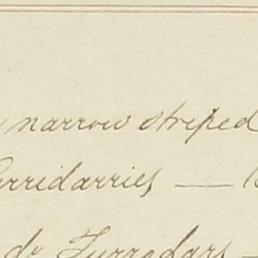 narrow striped
Gerridarries — 1
do Furrodars —